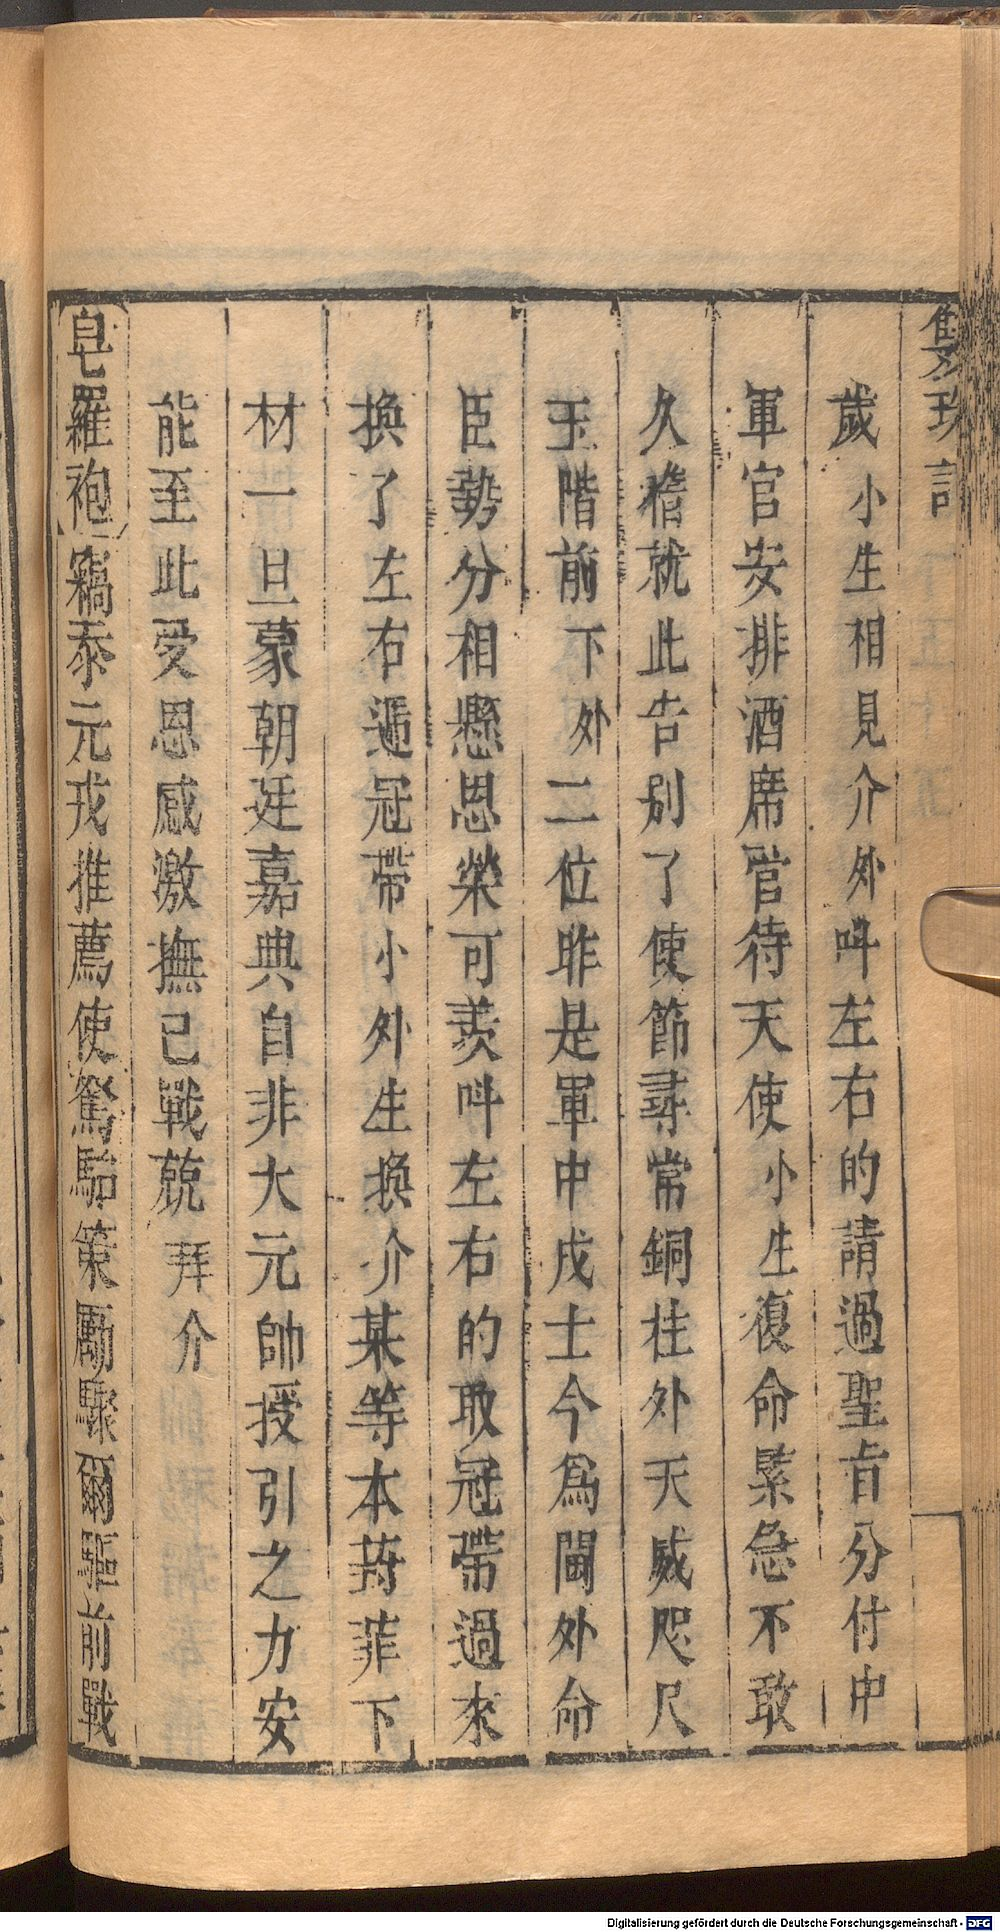 雙珠記
歲小生相見介外呌左右的請過聖旨分付中
軍官安排酒席管待天使小生復命緊急不敢
久稽就此告別了使節尋常銅柱外天威咫尺
玉階前下外二位昨是軍中戍士今爲閫外命
臣勢分相懸恩榮可羨呌左右的取冠帶過來
換了左右遞冠帶小外生換介某等本葑菲下
材一旦蒙朝廷嘉典自非大元帥授引之力安
能至此受恩感激撫己戰兢拜介
皂羅袍竊忝元戎推薦使駑駘策勵驟爾驅前戰
Digitalisierung gefördert durch die Deutsche Forschungsgemeinschaft - DFG